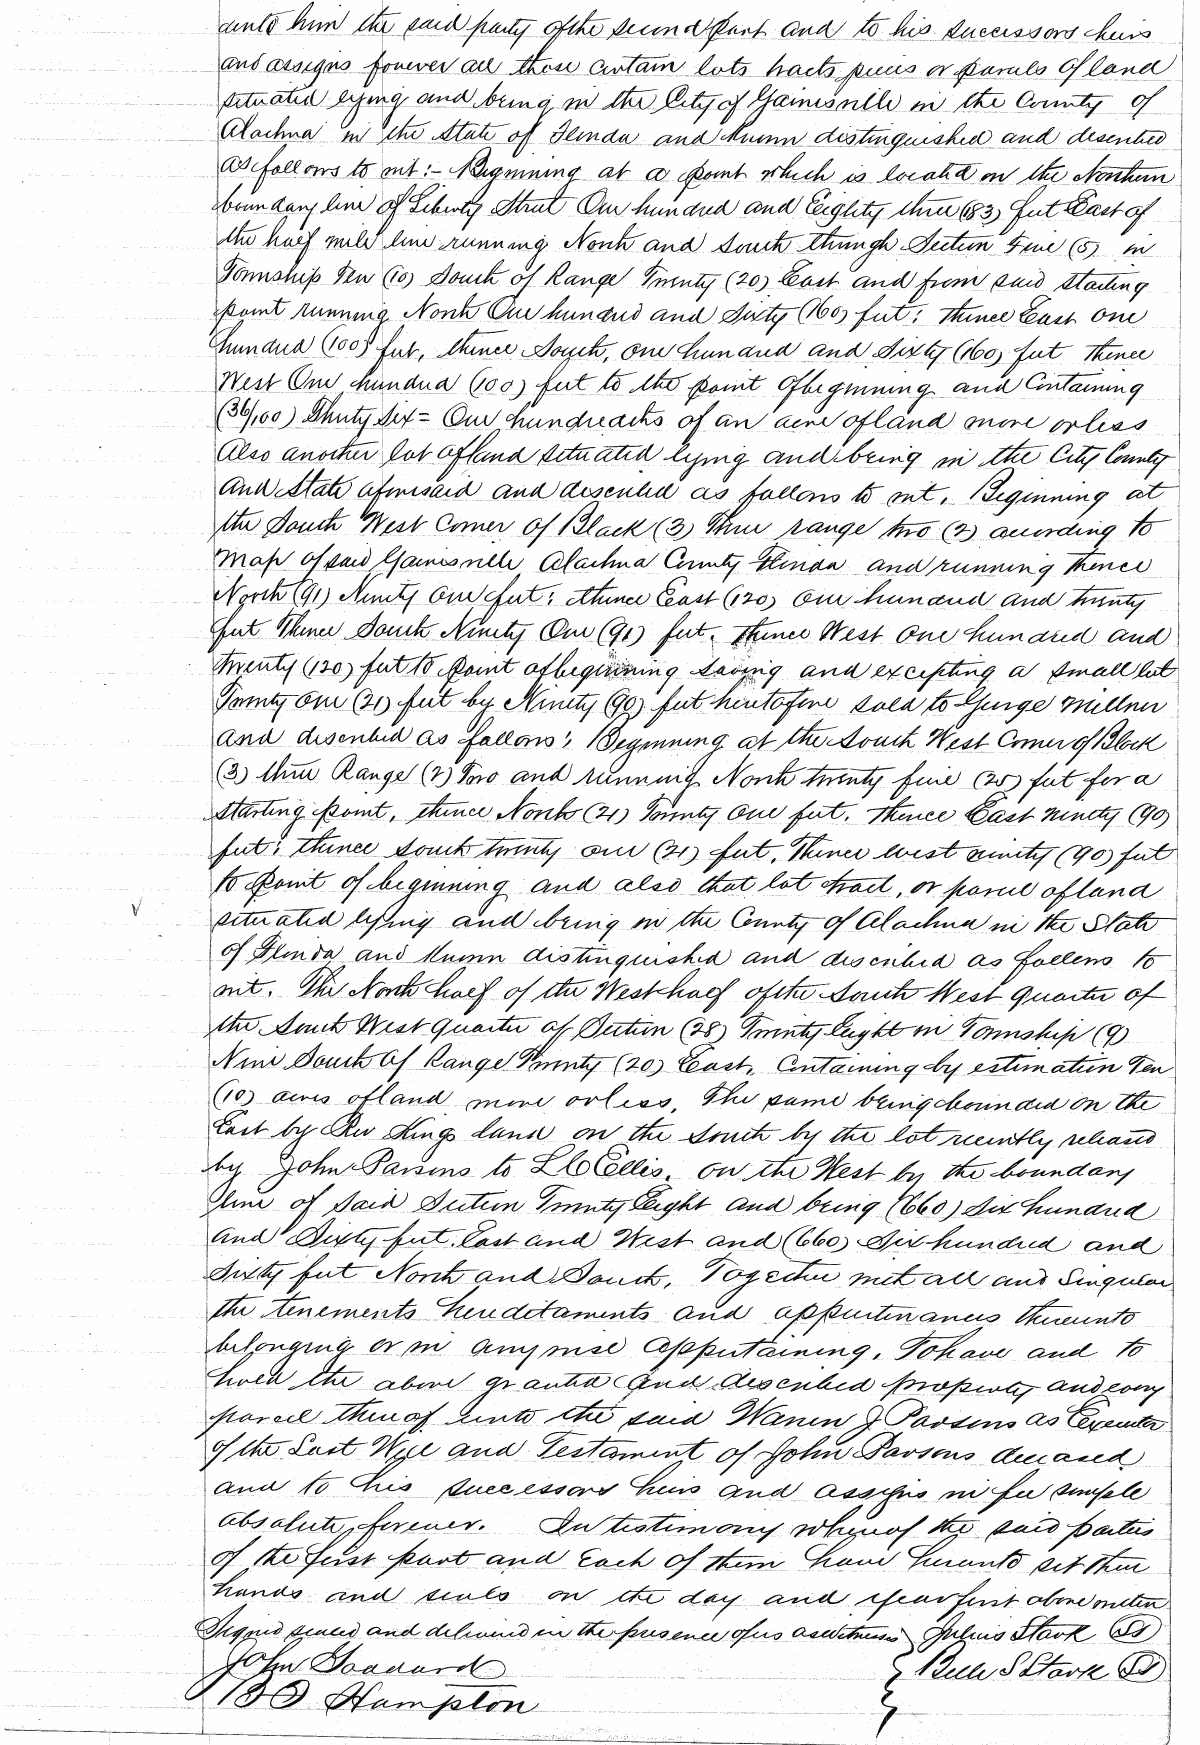 unto him the said party of the second part and to his successors heirs
and assigns forever all those certain lots tracts pieces or parcels of land
situated lying and being in the City of Gainesville in the County of
Alachua in the State of Florida and known distinguished and described
as follows to wit:- Beginning at a point which is located on the Northern
boundary line of Liberty Street One hundred and Eighty three (183) feet East of
the half mile line running North and South through Section Five (5) in
Township Ten (10) South of Range Twenty (20) East and from said starting
point running North One hundred and Sixty (160) feet; thence East one
hundred (100) feet, thence South, one hundred and Sixty (160) feet thence
West One hundred (100) feet to the point of beginning and Containing
(36/100) Thirty Six = One hundreadths of an acre of land more or less
Also another lot of land situated lying and being in the City County
and State aforesaid and described as follows to wit. Beginning at
the South West Corner of Block (3) Three range two (2) acording to
Map of said Gainesville Alachua County Florida and running thence
North (91) Ninety One feet; thence East (120) One hundred and twenty
feet Thence South Ninety One (91) feet. thence West One hundred and
twenty (120) feet to point of beginning saving and excepting a small lot
Twenty one (21) feet by Ninety (90) feet heretofore sold to George Millner
and described as follows; Beginning at the South West Corner of Block
(3) three Range (2) Two and running North twenty five (25) feet for a
starting point, thence North (21) Twenty One feet. Thence East ninety (90)
feet; thence south twenty one (21) feet, Thence west ninety (90) feet
to point of beginning and also that lot tract, or parcel of land
situated lying and being in the County of Alachua in the State
of Florida and known distinguished and described as follows to
wit. The North half of the West half of the South West quarter of
the South West quarter of Section (28) Twenty Eight in Township (9)
Nine South of Range Twenty (20) East, Containing by estimation Ten
(10) acres of land more or less, The same being bounded on the
East by Rev Kings land on the South by the lot recently released
by John Parsons to L C Ellis, on the West by the boundary
line of said Section Twenty Eight and being (660) Six hundred
and Sixty feet East and West and (660) Six hundred and
Sixty feet North and South, Together with all and Singular
the tenements hereditaments and appurtenances thereunto
belonging or in anywise appertaining. To have and to
hold the above granted and described property and every
parcel thereof unto the said Warren J Parsons as Executor
of the Last Will and Testament of John Parsons deceased
and to his successors heirs and assigns in fee simple
absolute, forever. In testimony whereof the said parties
of the first part and Each of them have hereunto set their
hands and seals on the day and year first above written
Signed sealed and delivered in the presence of us as witness } Julius Stark (LS)
John Goddard } Belle S Stark (LS)
B D Hampton }